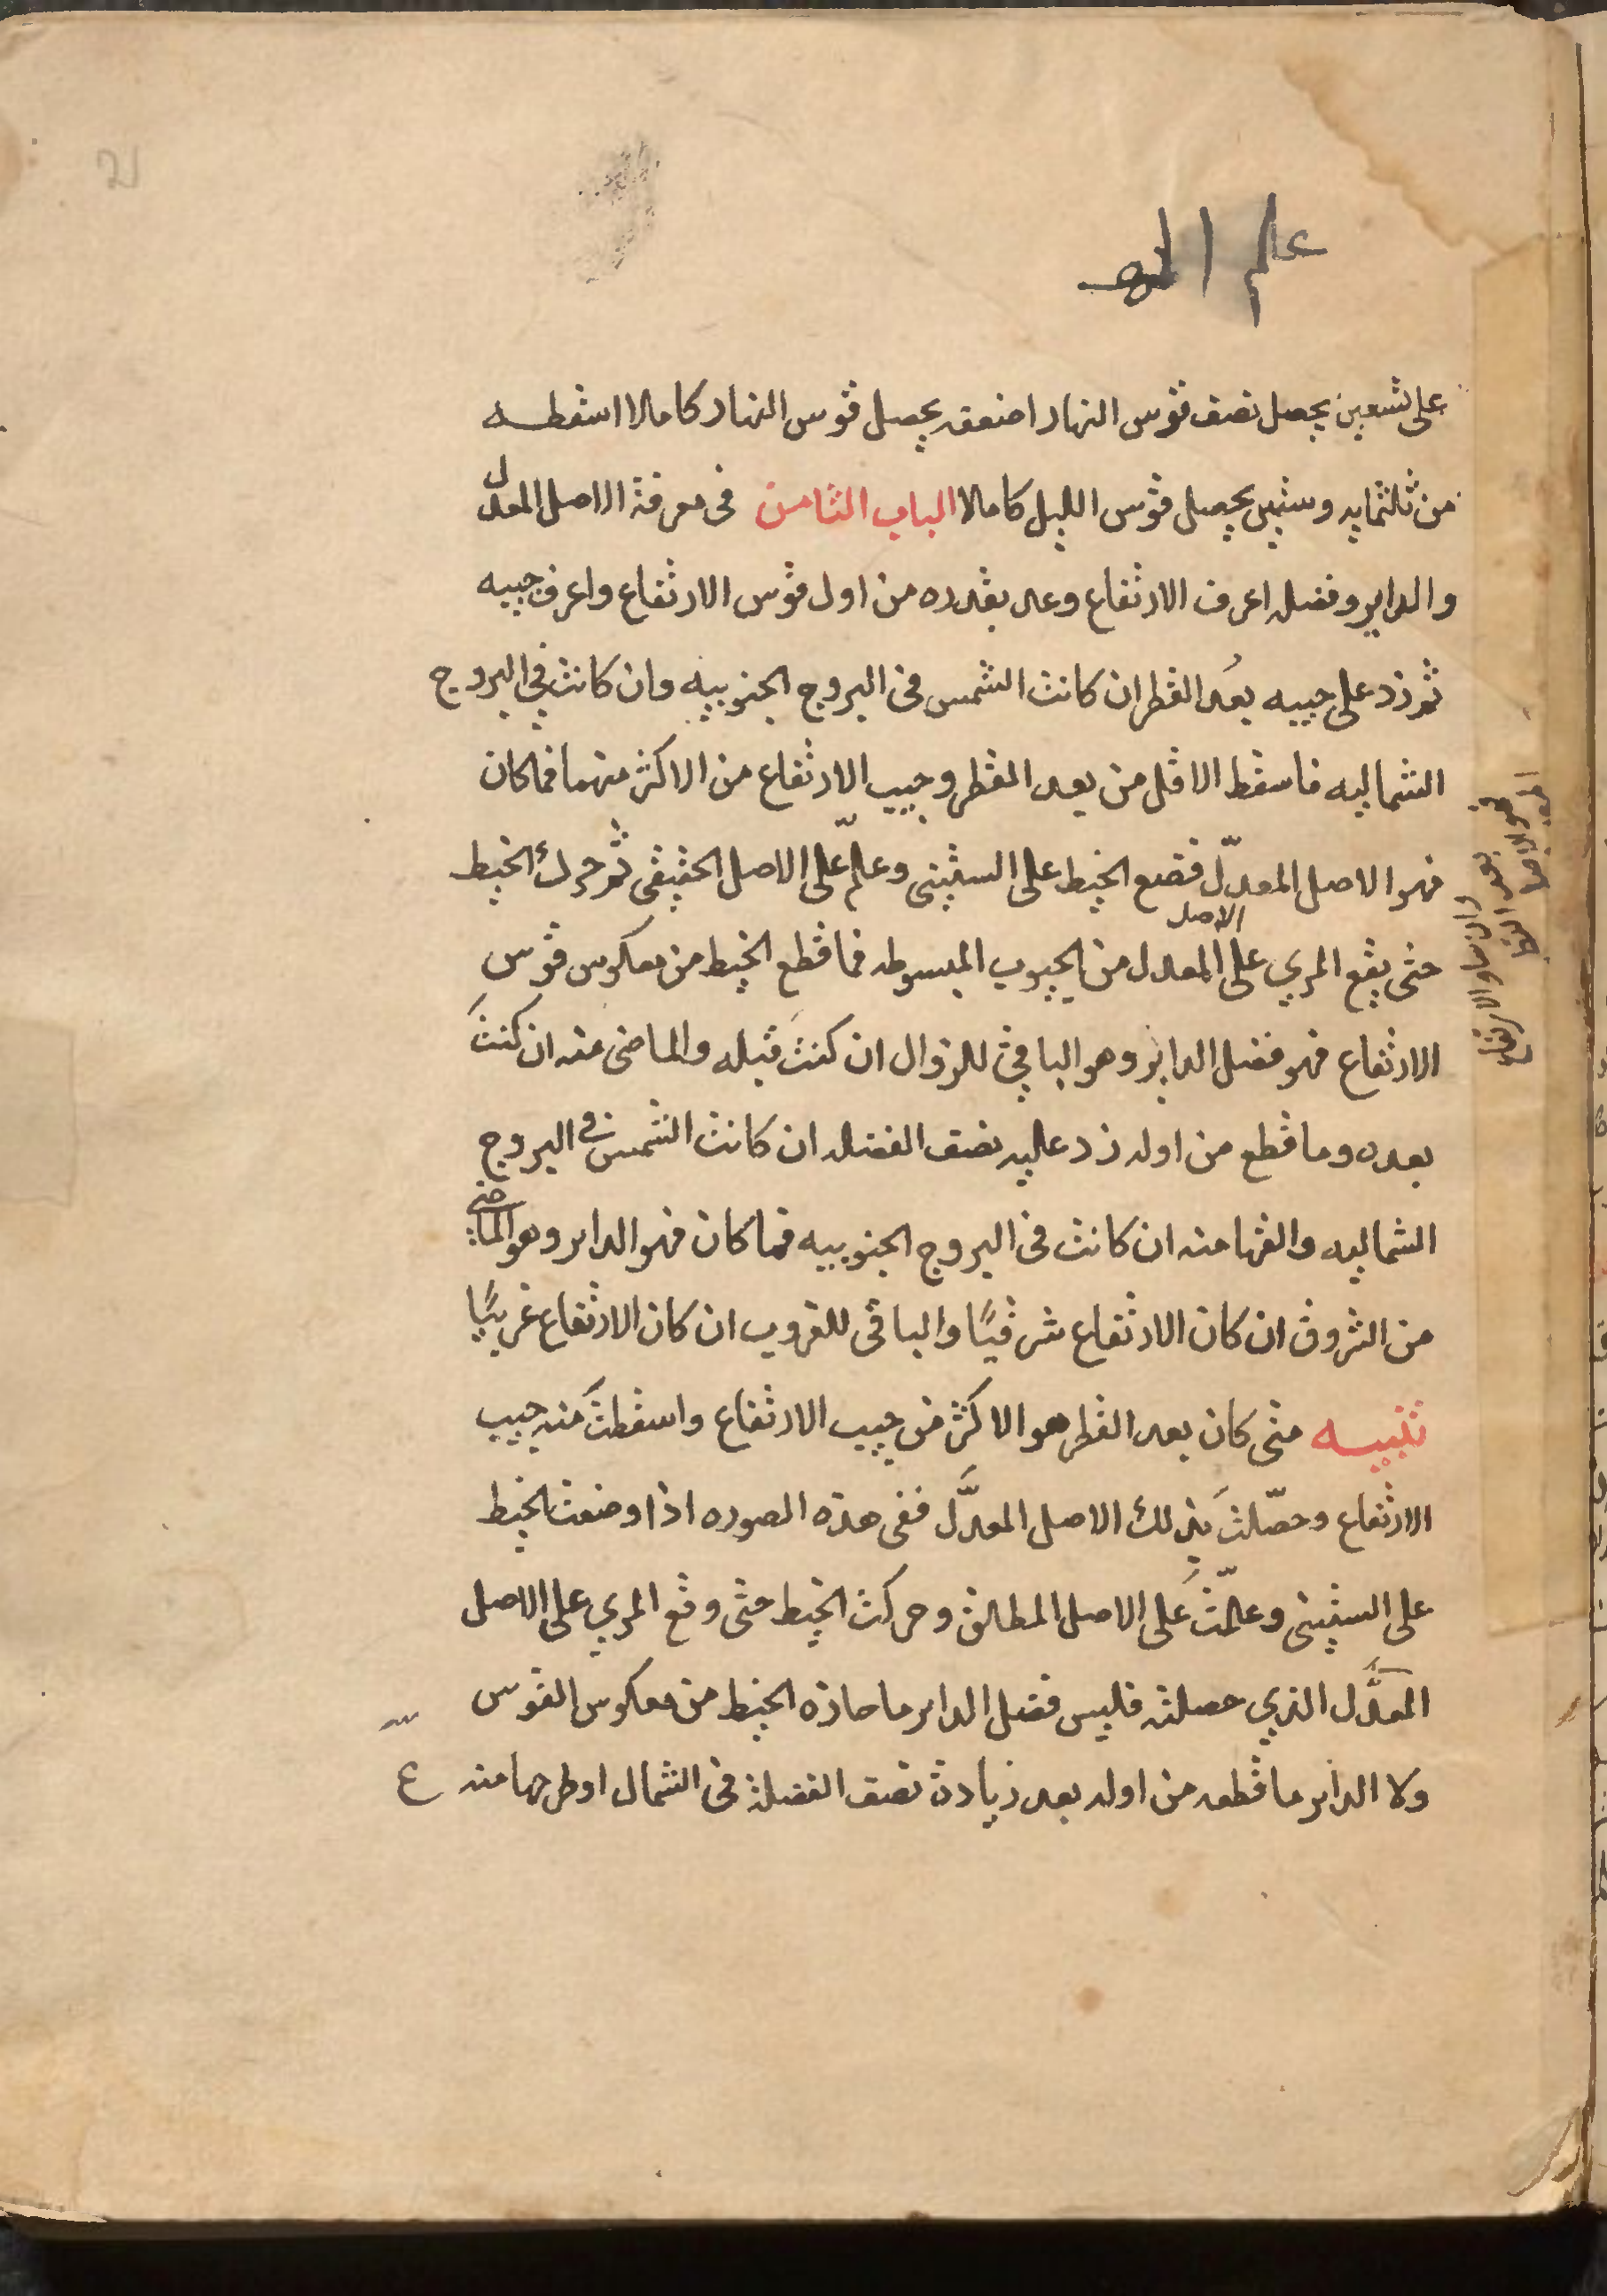 علم
على تسعين يحصل نصف قوس النهار اضعفه يحصل قوس النهار كاملا اسقطه
من ثلثمايه وستين يحصل قوس الليل كاملا الباب الثامن في معرفة الاصل المعدل
والداير وفضله اعرف الارتفاع وعد بقدره من اول قوس الارتفاع واعرف جيبه
ثم زد على جيبه بعُد القطر ان كانت الشمس في البروج الجنوبيه وان كانت في البروج
الشماليه فاسقط الاقل من بعد القطر وجيب الارتفاع من الاكثر منهما فما كان
فهو الاصل المعدّل فضع الخيط على الستيني وعلّم على الاصل الحقيقي ثم حرك الخيط
حتى يقع المري على الاصل المعدل من الجيوب المبسوطه فما قطع الخيط من معكوس قوس
الارتفاع فهو فضل الداير وهو الباقي للزوال ان كنتَ قبله والماضي منه ان كنتَ
بعده وما قطع من اوله زد عليه نصف الفضله ان كانت الشمس في البروج
الشماليه والقها منه ان كانت في البروج الجنوبيه فما كان فهو الداير وهو الماضي
من الشروق ان كان الارتفاع شرقيًا والباقي للغروب ان كان الارتفاع غربيًا
تنبيه متى كان بعد القطر هو الاكثر من جيب الارتفاع واسقطتَ منه جيب
الارتفاع وحصّلتَ بذلك الاصل المعدَّل ففي هذه الصوره اذا وضعت الخيط
على الستيني وعلّمتَ على الاصل المطلق وحركت الخيط حتى وقع المري على الاصل
المعدَّل الذي حصلته فليس فضل الداير ما حاذه الخيط من معكوس القوس
ولا الداير ما قطعه من اوله بعد زيادة نصف الفضلة في الشمال او طرحها منه
وان ساوا الارتفاع
بعد القطر